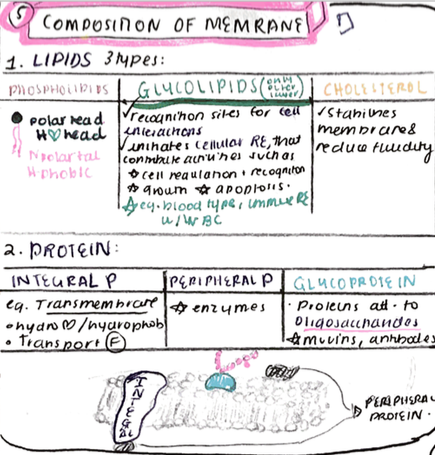 5 COMPOSITION OF MEMRANE
1. LIPIDS 3 types:
PHOSPHOLIPIDS
polar head
H♡ head
N polar tail
H-phobic
GLYCOLIPIDS (only outer layer)
✓recognition sites for cell
interactions
✓initiates cellular RE, that
contribute activities such as
☆ cell regulation + recognition
☆ growth ☆ apoptosis.
☆ eg. blood type, immune RE
w/ WBC
CHOLESTEROL
✓Stabilises
membrane &
reduce fluidity
2. PROTEIN:
INTEGRAL P
eg. Transmembrane
• hydro♡/hydrophob
• Transport F
PERIPHERAL P
☆ enzymes
GLUCOPROTEIN
• Proteins att. to
Oligosaccharides
☆ mucins, antibodies
INTEGRAL
PERIPHERAL
PROTEIN.